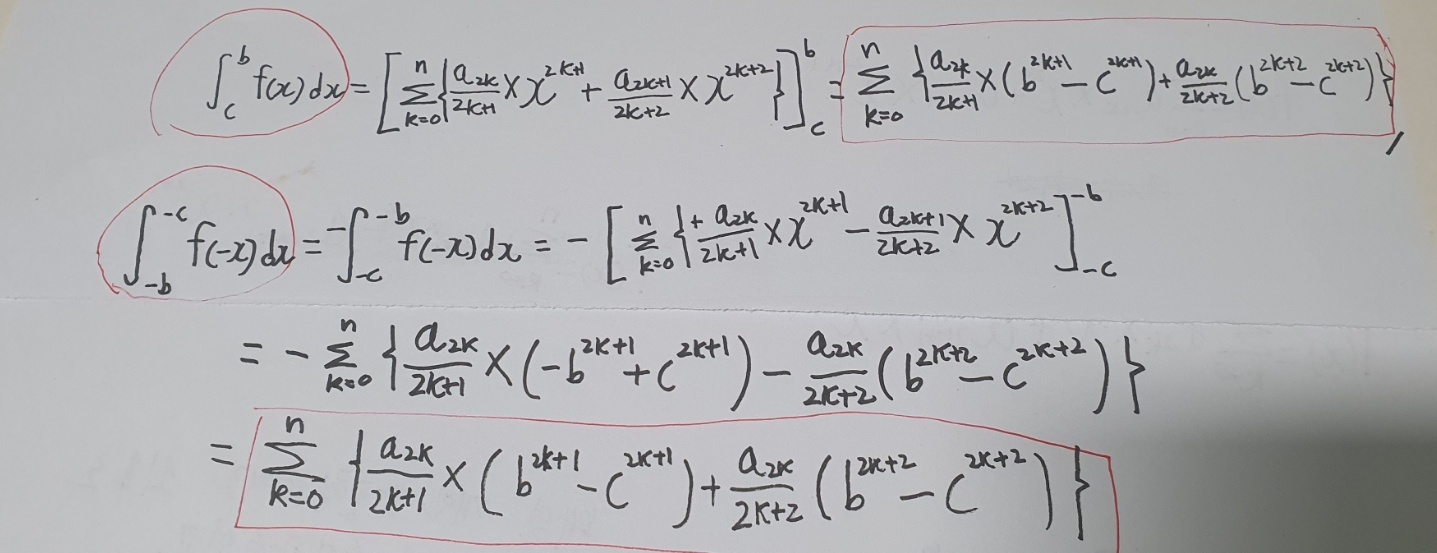 ∫_c^b f(x)dx = [∑_{k=0}^n {a_{2k}/(2k+1) × x^{2k+1} + a_{2k+1}/(2k+2) × x^{2k+2}}]_c^b = ∑_{k=0}^n {a_{2k}/(2k+1) × (b^{2k+1} - c^{2k+1}) + a_{2k}/(2k+2) (b^{2k+2} - c^{2k+2})},
∫_{-b}^{-c} f(-x)dx = -∫_{-c}^{-b} f(-x)dx = -[∑_{k=0}^n {+ a_{2k}/(2k+1) × x^{2k+1} - a_{2k+1}/(2k+2) × x^{2k+2}]_{-c}^{-b}
= -∑_{k=0}^n {a_{2k}/(2k+1) × (-b^{2k+1} + c^{2k+1}) - a_{2k}/(2k+2) (b^{2k+2} - c^{2k+2})}
= ∑_{k=0}^n {a_{2k}/(2k+1) × (b^{2k+1} - c^{2k+1}) + a_{2k}/(2k+2) (b^{2k+2} - c^{2k+2})}